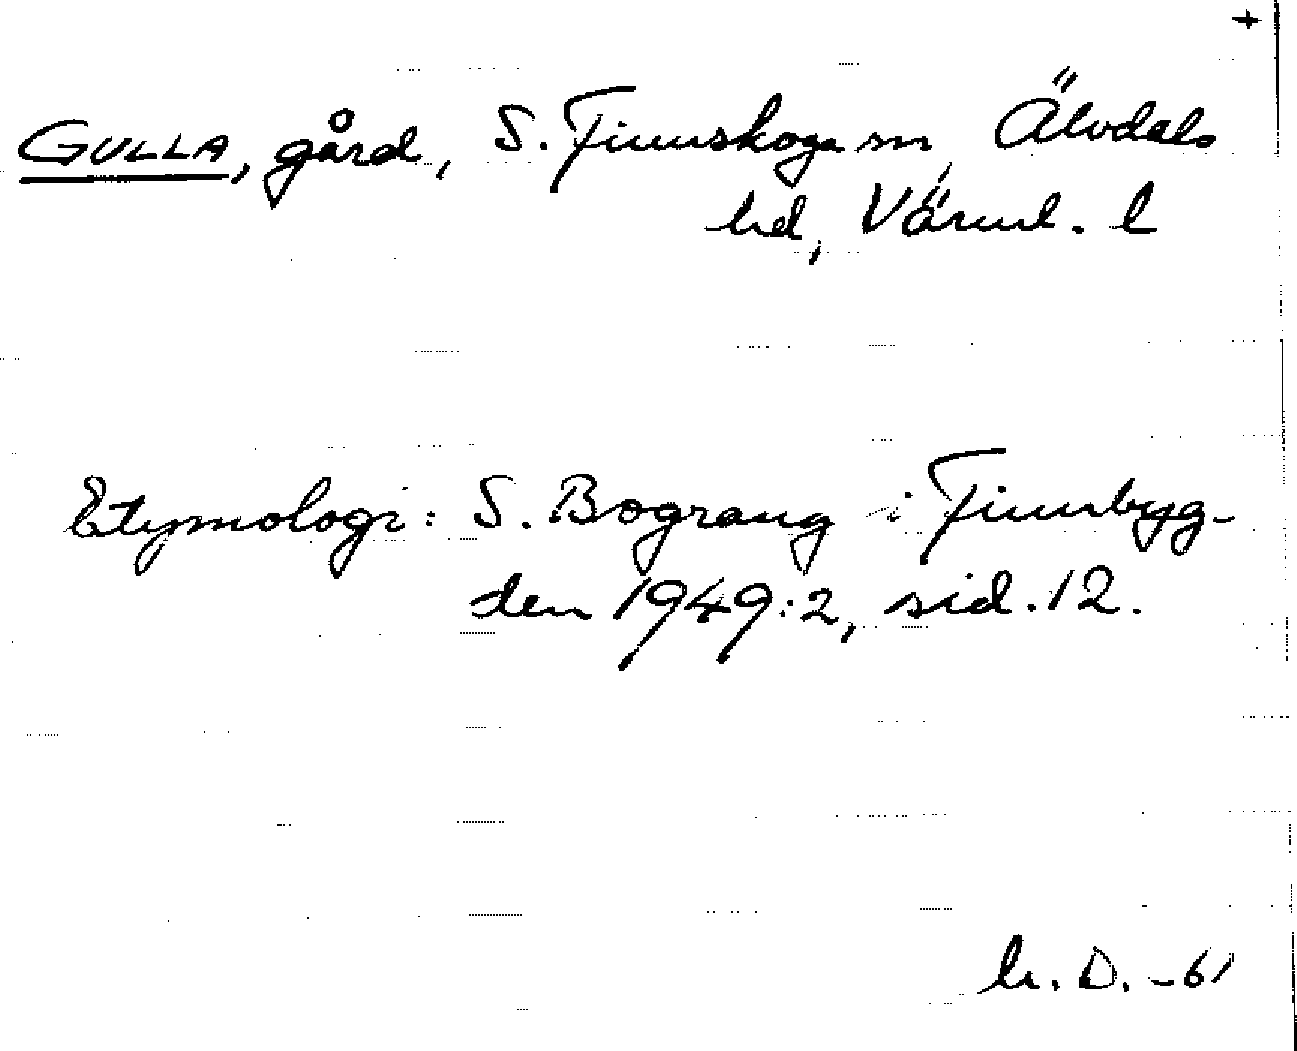 +
GULLA, gård, S. Finnskoga sn, Älvdals
hd, Värml. l
Etymologi: S. Bograng i Finnbyg-
den 1949:2, sid. 12.
h. D. -61